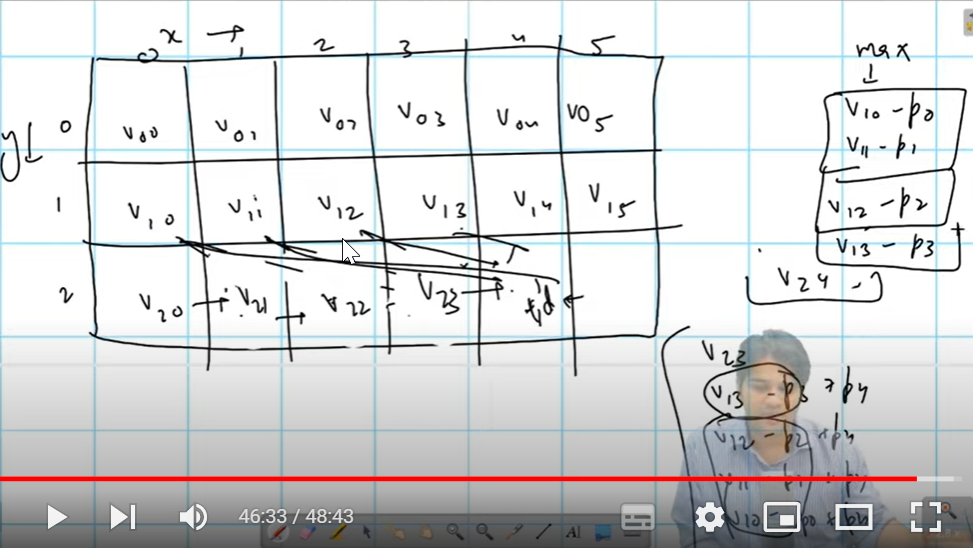 x →
0 1 2 3 4 5
y↓
0 V00 V01 V02 V03 V04 V05
1 V10 V11 V12 V13 V14 V15
2 V20 → V21 → V22 V23 →
max
↓
V10 - p0
V11 - p1
V12 - p2
V13 - p3
+
V24 -
V23
V13 - p3 + p4
V12 - p2 + p4
V10 - p0 + p4
46:33 / 48:43
AI